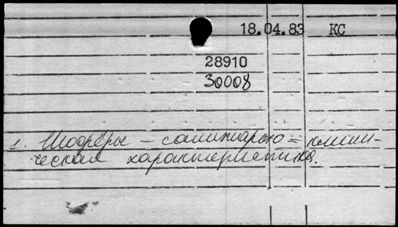 18.04.83 КС
28910
30008
1. Шофёры – санитарно = клини-
ческая характеристика.